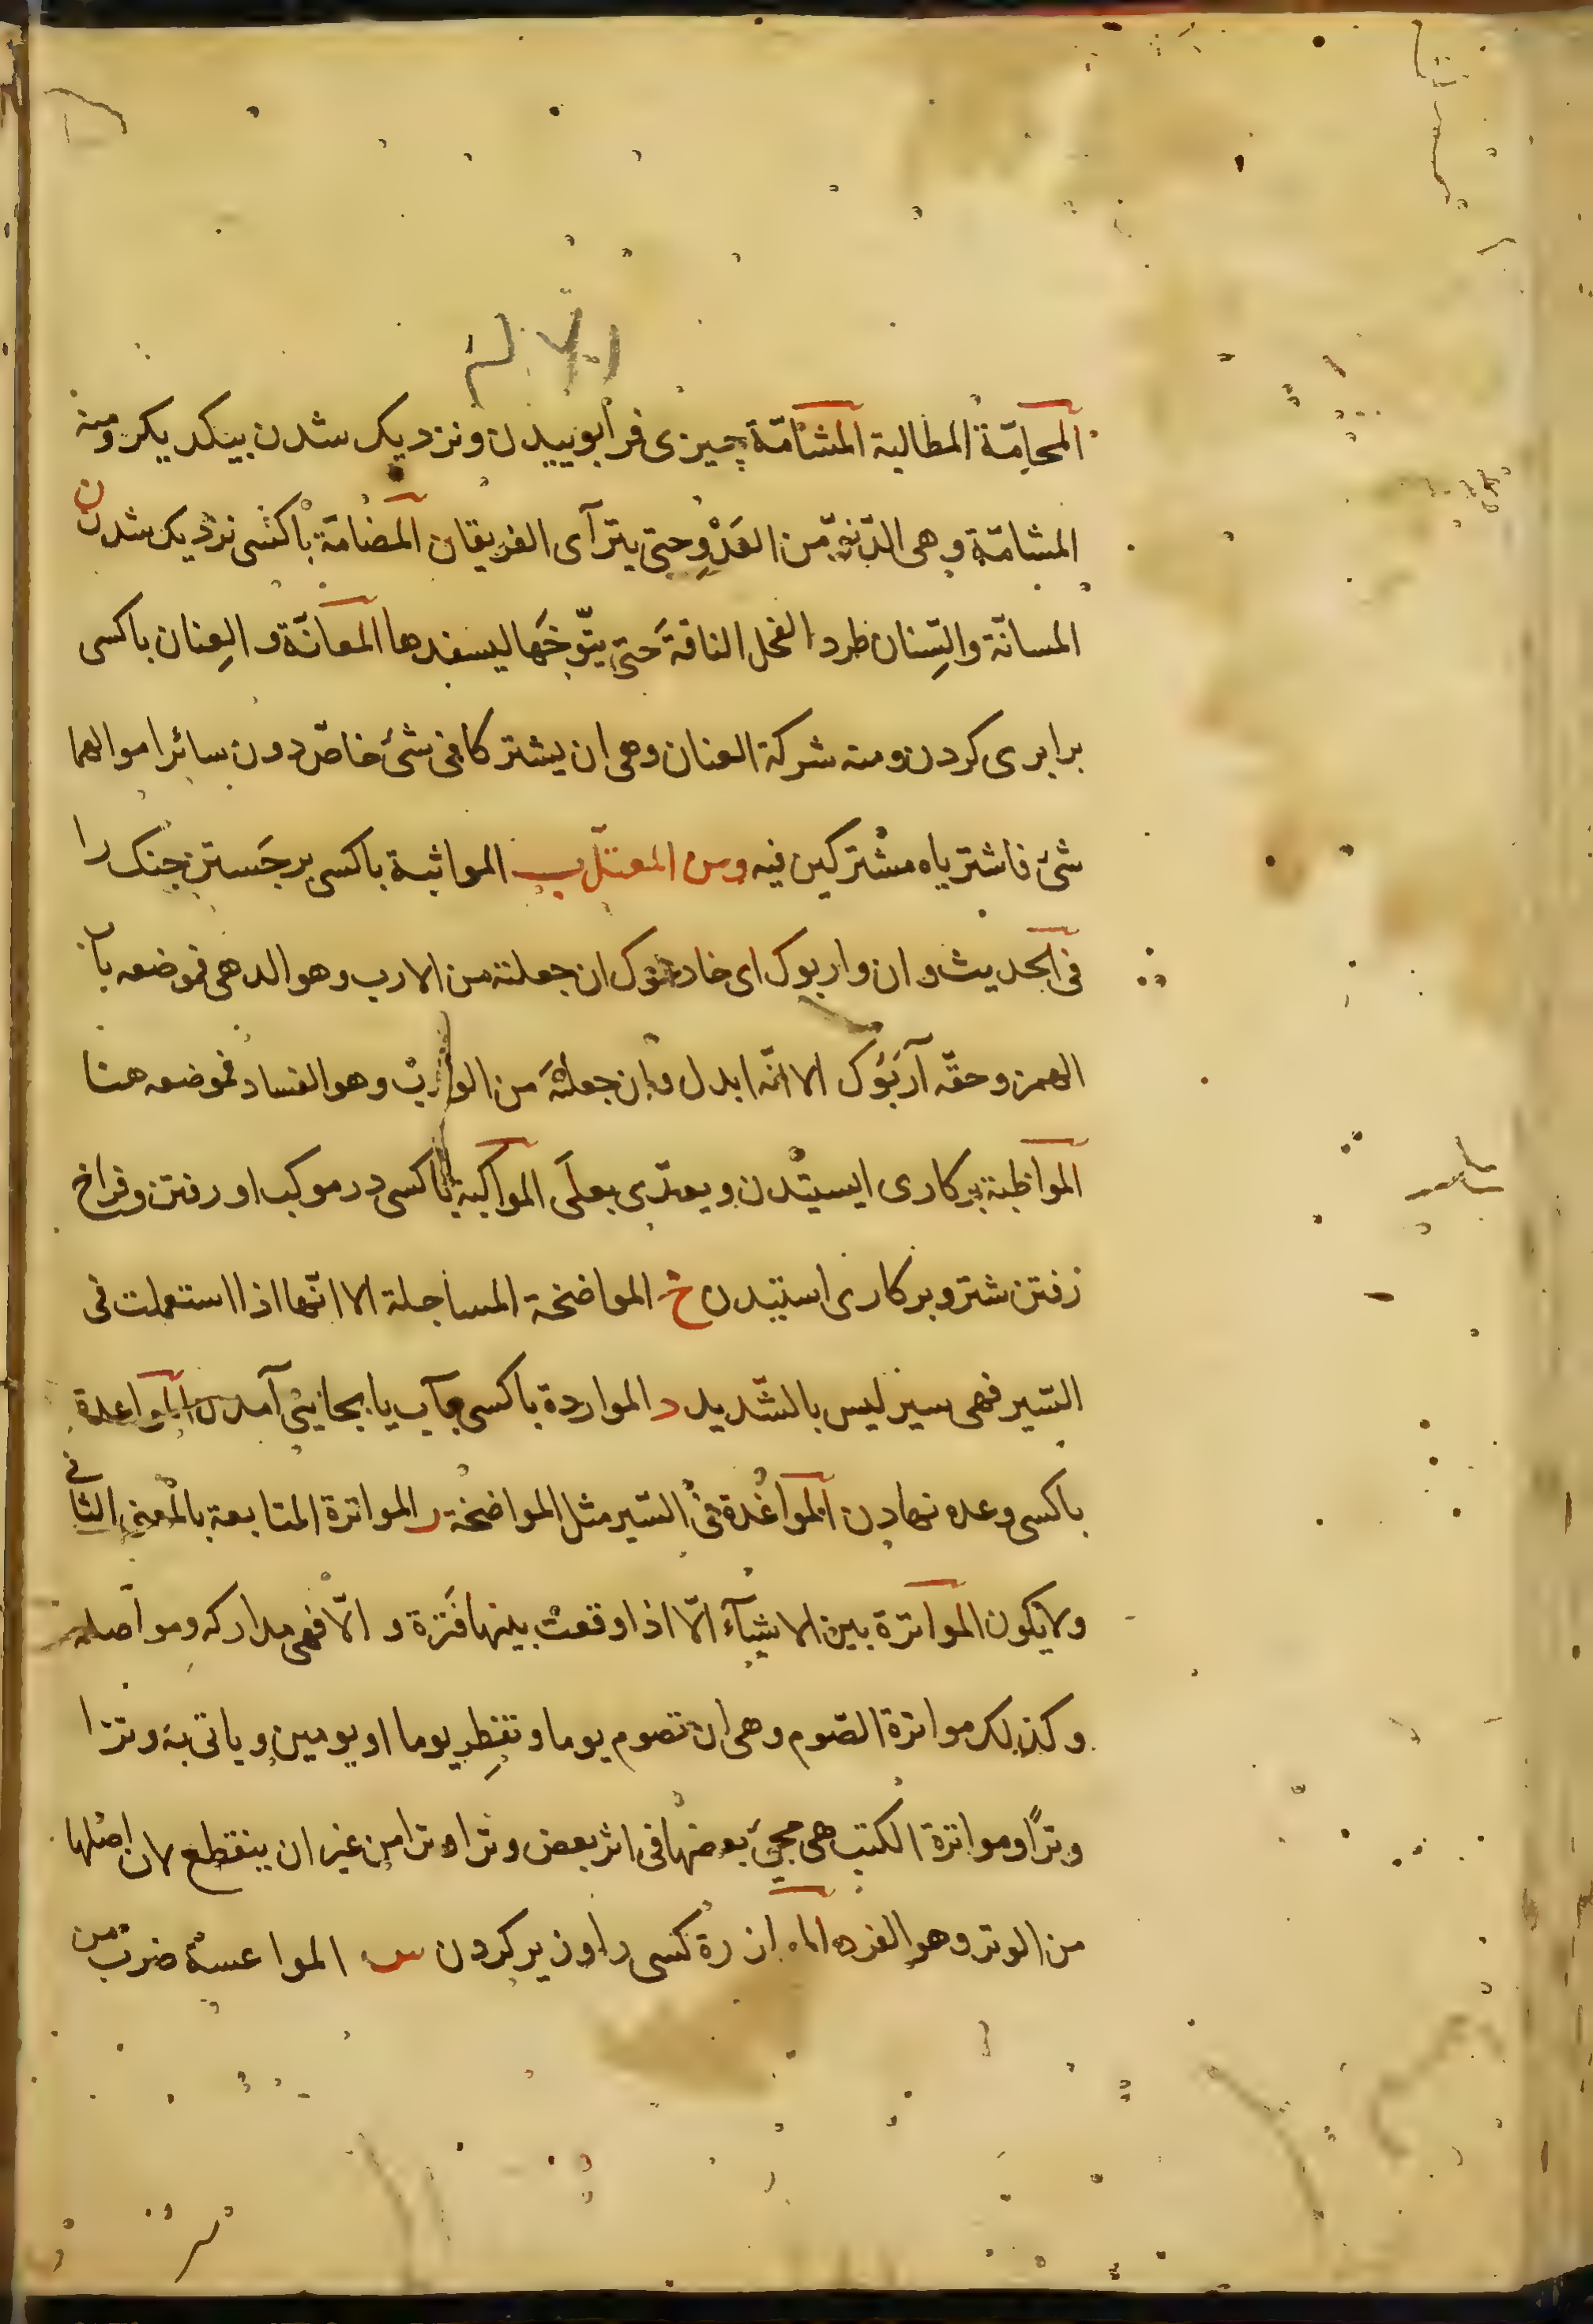 المحامّة المطالبة المشامّة چیزی فرابوییدن ونزدیک شدن بیکدیکر ومنه
المشامّة وهی الدّنوّ من العَدْوِ حتی یترآی الفریقان المضامّة باکسی نزدیک شدن ن
المسانّة والسِّنان طرد الفحل الناقةَ حتی یتنوّخَها لیسفدها المعانّة و العِنان باکسی
برابری کردن ومنه شرکة العنان وهی ان یشترکا فی شئ خاصّ دون سائر اموالهما
شئ فاشتریاه مشترکین فیه ومن المعتلّ ب المواثبة باکسی برجَستن جنک را
فی الحدیث و ان واربوک ای خادعوک ان جعلته من الارب وهو الدهی فموضعه باب
الهمز وحقّه آرَبُوک الا انّه ابدل وان جعلتَهَ من الوربْ وهو الفساد فموضعه هنا
المواظبة برکاری ایستدن ویعدّی بعلَی المواکبة باکسی در موکب او رفتن وفراخ
رفتن شتر وبرکاری استیدن خ المواضخة المساجلة الا انّها اذا استعملت فی
السّیر فهی سیر لیس بالشّدید د المواردة باکسی بآب یا بجائی آمدن المواعدة
باکسی وعده نهادن المواغدة فی السّیر مثل المواضخة ر المواترة المتابعة بالمعنی الثانی
ولا یکون المواترة بین الاشیآء الّا اذا وقعتْ بینها فَترة و الّا فهی مدارکه ومواصله
وکذلک مواترة الصّوم وهی ان تصوم یوما وتفطِر یوما او یومین ویاتی به وترا
وترًا ومواترة الکتب هی مجئ بعضها فی اثر بعض وترا وترا من غیر ان ینقطع لان اصلها
من الوتر وهو الفرد الموازرة کسی را وزیر کردن س المواعسة ضرب من